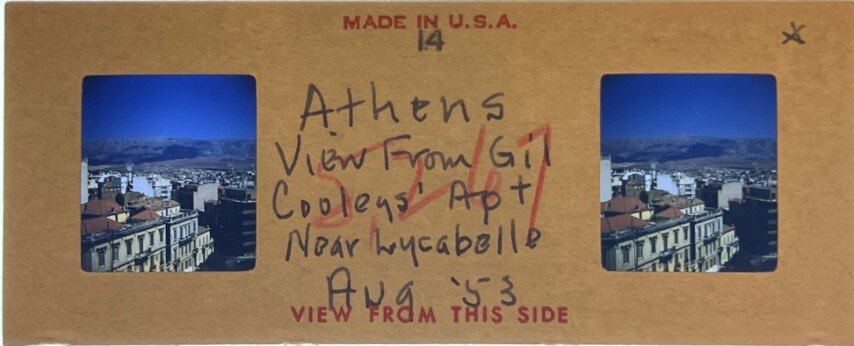 MADE IN U.S.A.
14
Athens
View From Gil
Cooleys' Apt
Near Lycabelle
Aug '53
VIEW FROM THIS SIDE